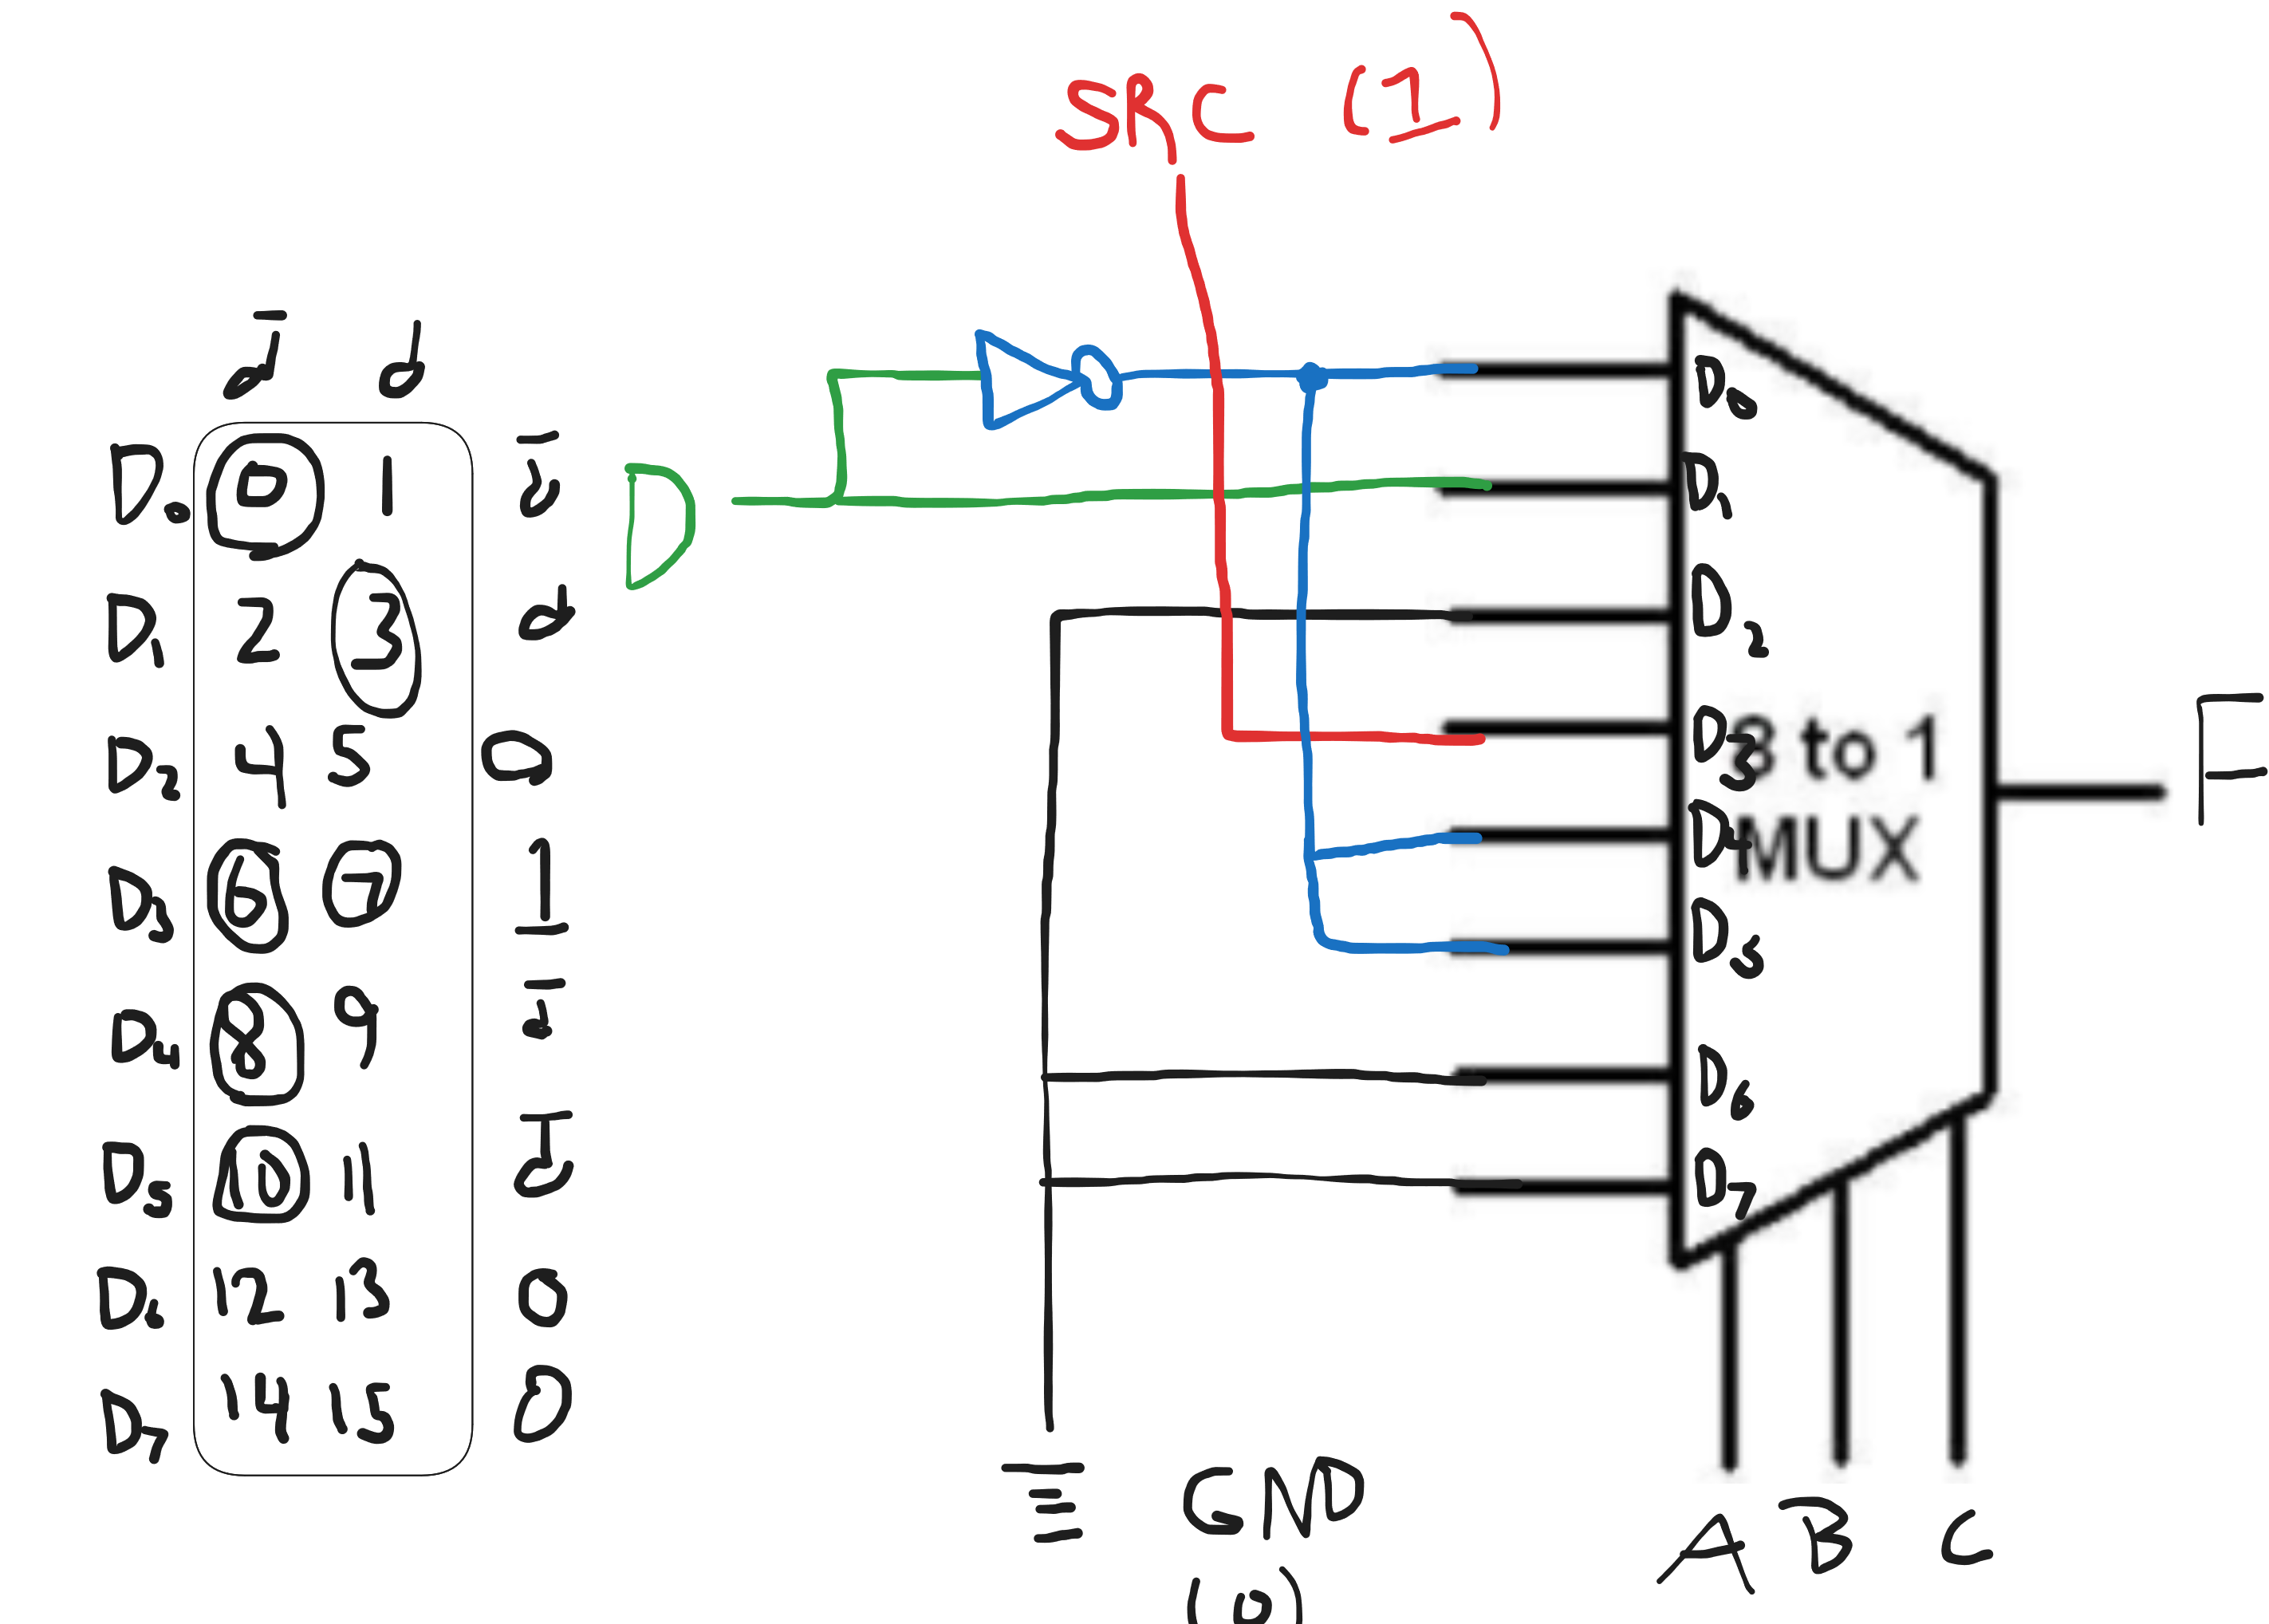 SRC (1)
d̅ d
D₀ 0 1 d̅
D₁ 2 3 d
D₂ 4 5 0
D₃ 6 7 1
D₄ 8 9 d̅
D₅ 10 11 d̅
D₆ 12 13 0
D₇ 14 15 0
D
D₀
D₁
D₂
D₃
D₄
D₅
D₆
D₇
8 to 1
MUX
F
A B C
GND
(0)